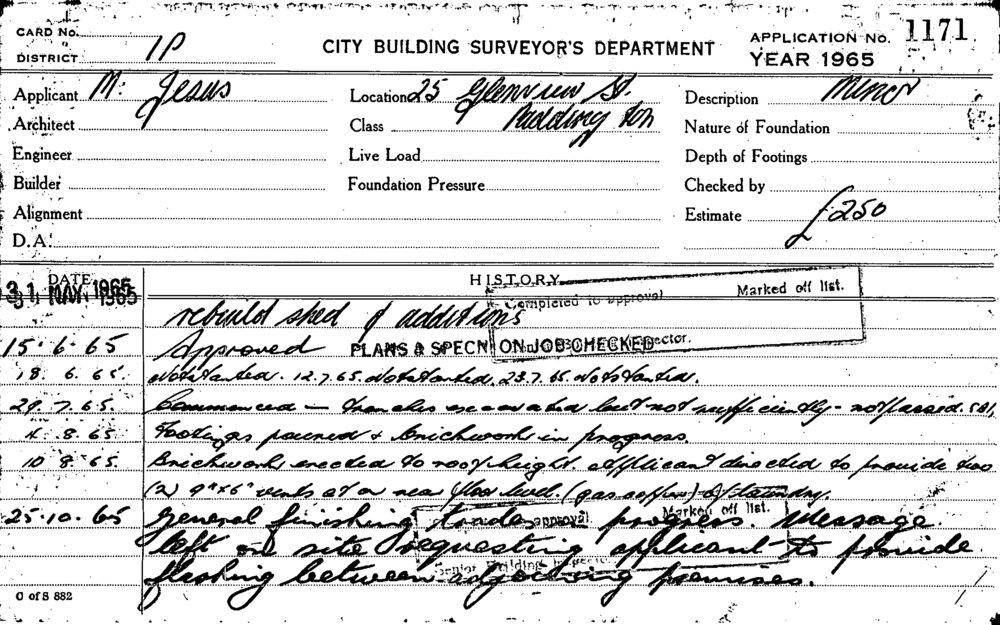 CARD No.
DISTRICT 1P
CITY BUILDING SURVEYOR'S DEPARTMENT
APPLICATION No. 1171
YEAR 1965
Applicant M. Jesus
Location 25 Glenview St.
Description Minor
Architect
Class Paddington
Nature of Foundation
Engineer
Live Load
Depth of Footings
Builder
Foundation Pressure
Checked by
Alignment
Estimate £250
D.A.
DATE
HISTORY
31 MAY 1965
Completed to approval Marked off list.
rebuild shed & additions
15.6.65 Approved PLANS & SPECN ON JOB CHECKED
18.6.65. Not started. 12.7.65. Not started. 23.7.65. Not started.
29.7.65. Commenced — trenches excavated but not sufficiently - not passed.
4.8.65 Footings poured & brickwork in progress.
10.8.65. Brickwork erected to roof height. Applicant directed to provide two
(2) 9"x6" vents at or near floor level. (gas copper) of laundry.
25.10.65 General finishing trades progress. Message
approval Marked off list.
left on site requesting applicant to provide
Senior Building Inspector.
flashing between adjoining premises.
C of S 882